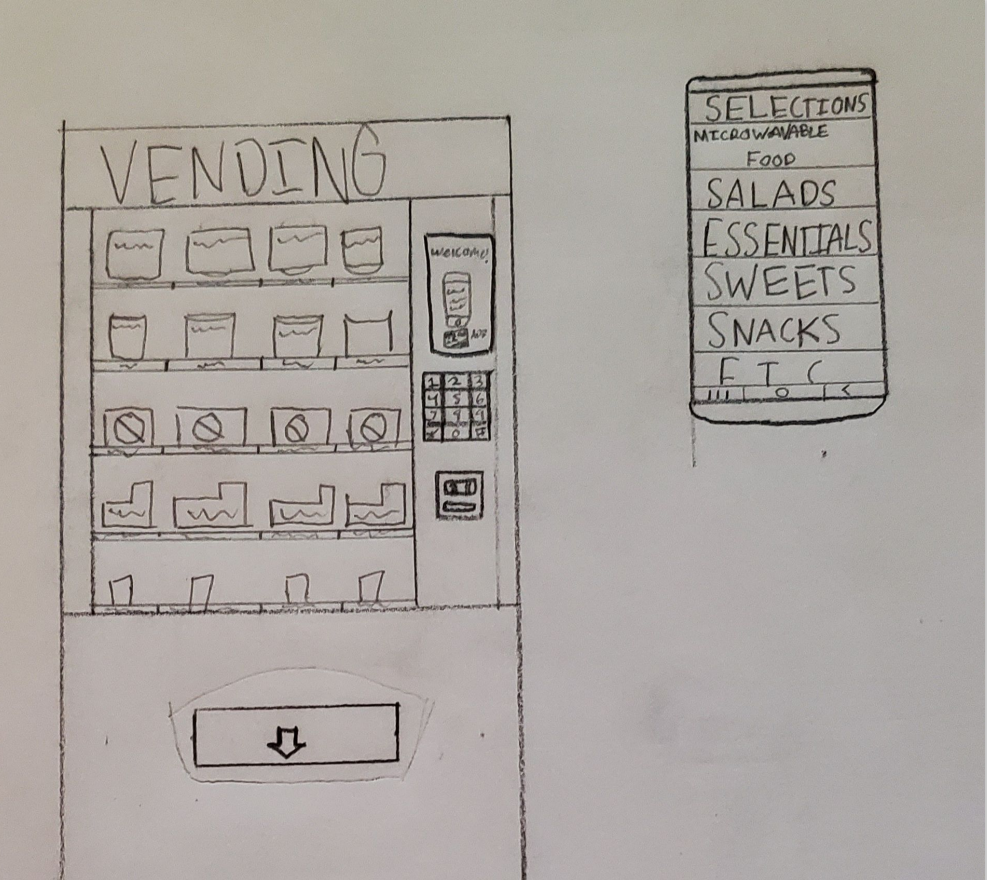 VENDING
WELCOME!
1 2 3
4 5 6
7 8 9
* 0 #
SELECTIONS
MICROWAVABLE
FOOD
SALADS
ESSENTIALS
SWEETS
SNACKS
ETC